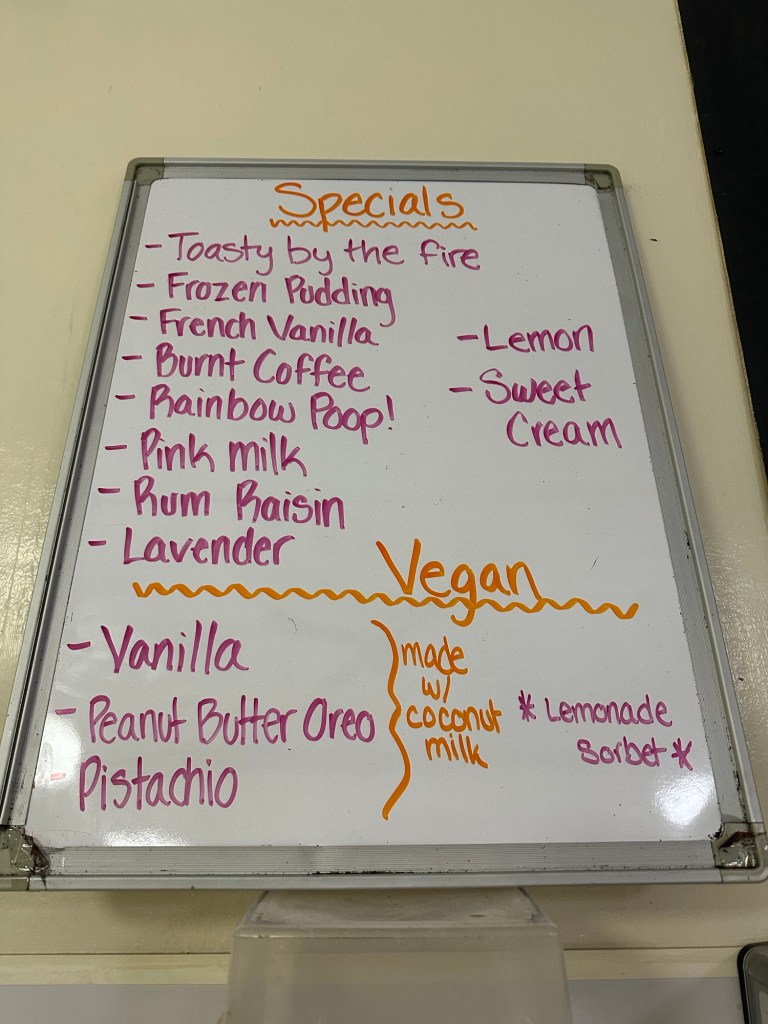 Specials
- Toasty by the fire
- Frozen Pudding
- French Vanilla
- Burnt Coffee
- Rainbow Poop!
- Pink milk
- Rum Raisin
- Lavender
- Lemon
- Sweet
Cream
Vegan
- Vanilla
- Peanut Butter Oreo
- Pistachio
made
w/
coconut
milk
* Lemonade
Sorbet *